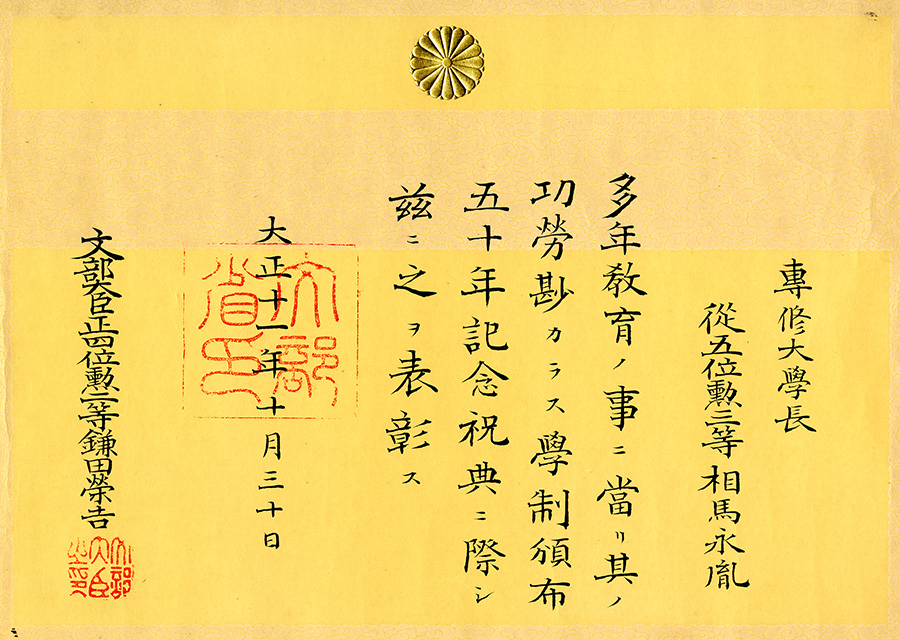 專修大學長
從五位勲三等相馬永胤
多年教育ノ事ニ當リ其ノ
功勞尠カラス學制頒布
五十年記念祝典ニ際シ
茲ニ之ヲ表彰ス
大正十一年十月三十日
文部省印
文部大臣正四位勲二等鎌田榮吉
文部大臣之印